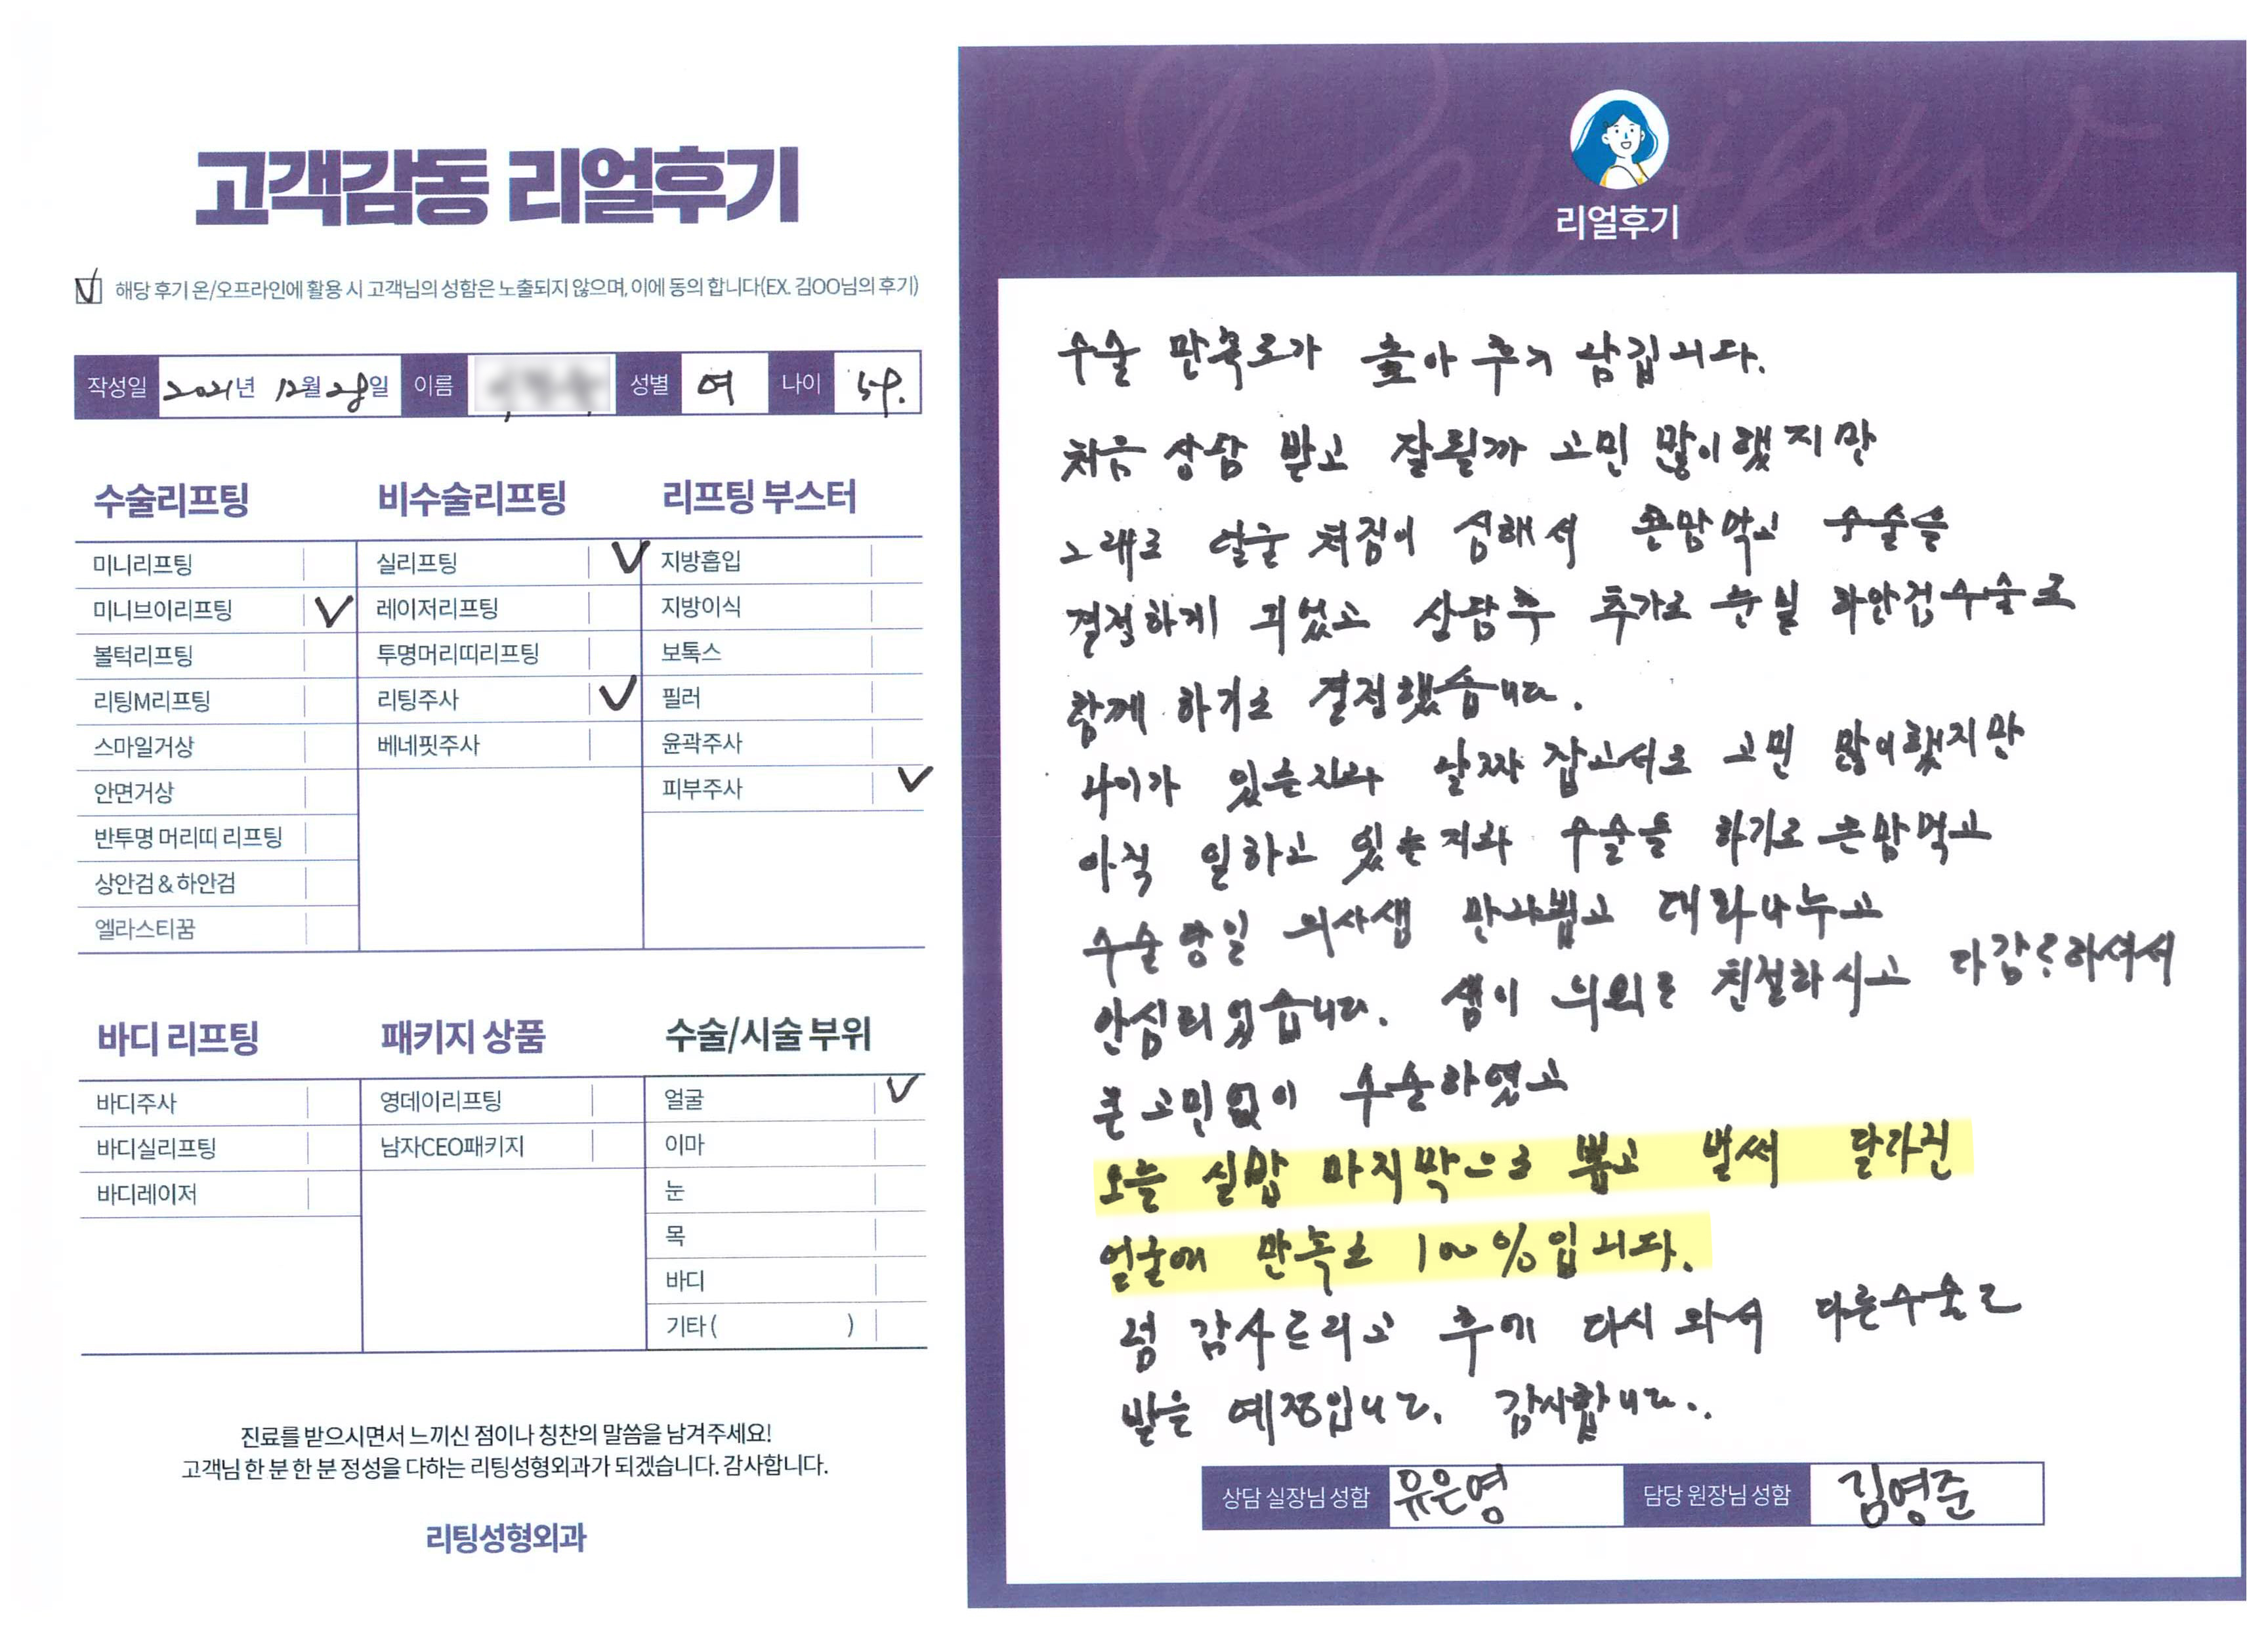 고객감동 리얼후기
해당 후기 온/오프라인에 활용 시 고객님의 성함은 노출되지 않으며, 이에 동의 합니다(EX. 김OO님의 후기)
작성일 2021년 12월 28일 이름 성별 여 나이 59.
수술리프팅
미니리프팅
미니브이리프팅
볼턱리프팅
리팅M리프팅
스마일거상
안면거상
반투명 머리띠 리프팅
상안검 & 하안검
엘라스티꿈
비수술리프팅
실리프팅
레이저리프팅
투명머리띠리프팅
리팅주사
베네핏주사
리프팅 부스터
지방흡입
지방이식
보톡스
필러
윤곽주사
피부주사
바디 리프팅
바디주사
바디실리프팅
바디레이저
패키지 상품
영데이리프팅
남자CEO패키지
수술/시술 부위
얼굴
이마
눈
목
바디
기타 ( )
진료를 받으시면서 느끼신 점이나 칭찬의 말씀을 남겨주세요!
고객님 한 분 한 분 정성을 다하는 리팅성형외과가 되겠습니다. 감사합니다.
리팅성형외과
Review
리얼후기
수술 만족도가 좋아 후기 남깁니다.
처음 상담 받고 잘될까 고민 많이했지만
노래로 얼굴 처짐이 심해서 큰맘먹고 수술을
결정하게 되었고 상담후 추가로 눈밑 하안검수술도
함께 하기로 결정했습니다.
나이가 있는지라 날짜 잡고서도 고민 많이했지만
아직 일하고 있는지라 수술을 하기로 큰맘먹고
수술당일 의사샘 만나뵙고 대화나누고
안심되었습니다. 샘이 의외로 친절하시고 다감하셔서
큰 고민없이 수술하였고
오늘 실밥 마지막으로 뽑고 벌써 달라진
얼굴에 만족도 100%입니다.
넘 감사드리고 후에 다시 와서 다른수술도
받을 예정입니다. 감사합니다..
상담 실장님 성함 유은영 담당 원장님 성함 김영준